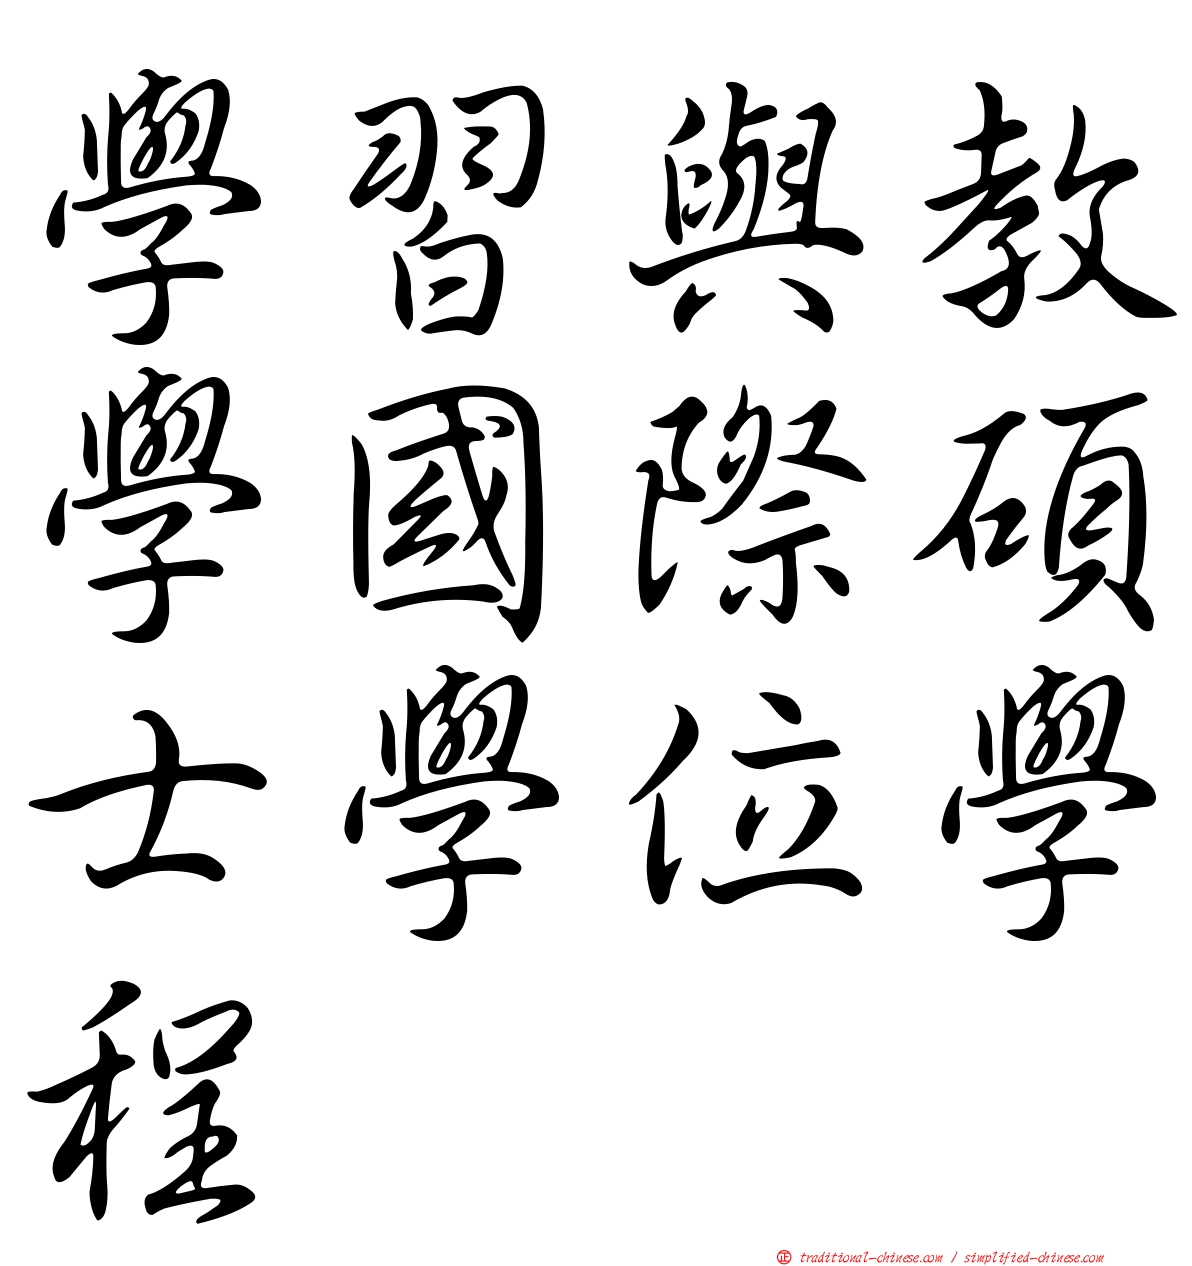 學習與教
學國際碩
士學位學
程
正 traditional-chinese.com / simplified-chinese.com